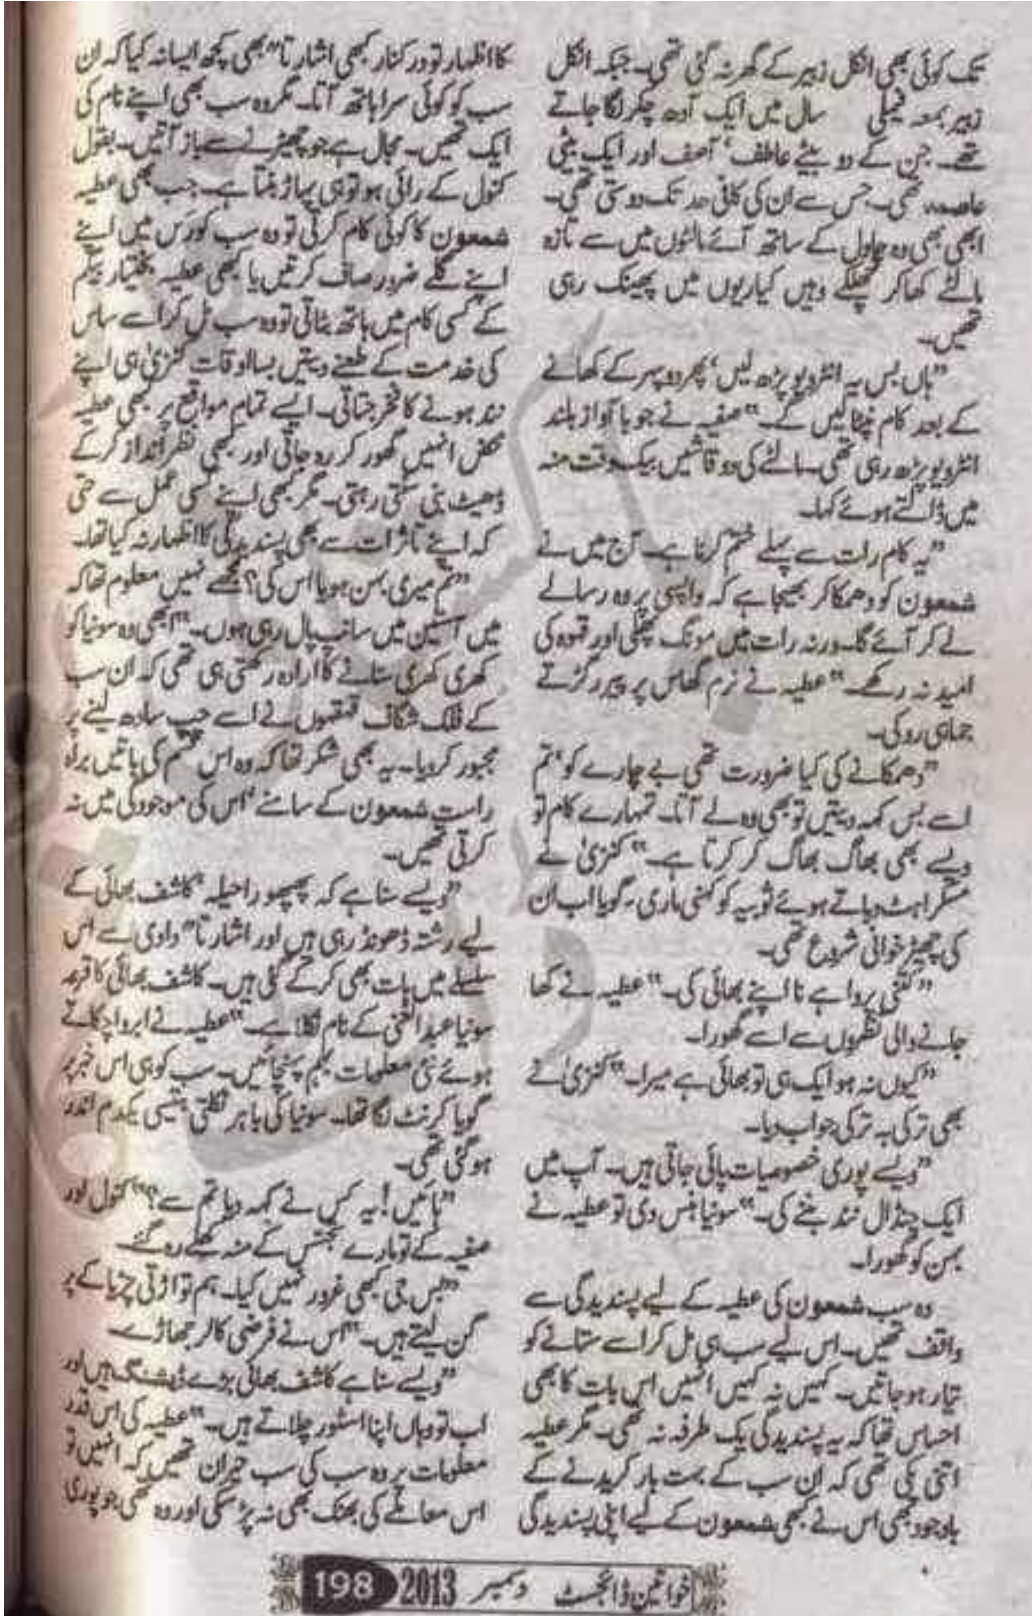 تک کوئی بھی انکل زبیر کے گھر نہ گئی تھی۔ جبکہ انکل
زبیر بمعہ فیملی سال میں ایک آدھ چکر لگا جاتے
تھے۔ جن کے دو بیٹے عاطف‘ آصف اور ایک بیٹی
عاصمہ تھی۔ جس سے ان کی کافی حد تک دوستی تھی۔
ابھی بھی وہ چاول کے ساتھ آئے مالٹوں میں سے تازہ
مالٹے کھا کر چھلکے وہیں کیاریوں میں پھینک رہی
تھیں۔
”ہاں بس یہ انٹرویو پڑھ لیں‘ پھر دوپہر کے کھانے
کے بعد کام نپٹا لیں گے۔“ صفیہ نے جو با آواز بلند
انٹرویو پڑھ رہی تھی۔ مالٹے کی دو قاشیں بیک وقت منہ
میں ڈالتے ہوئے کہا۔
”یہ کام رات سے پہلے ختم کرنا ہے۔ آج میں نے
شمعون کو دھمکا کر بھیجا ہے کہ واپسی پر وہ رسالے
لے کر آئے گا۔ ورنہ رات میں مونگ پھلی اور قہوہ کی
امید نہ رکھے۔“ عطیہ نے نرم گھاس پر پیر رگڑتے
جماہی روکی۔
”دھمکانے کی کیا ضرورت تھی بے چارے کو‘ تم
اسے بس کہہ دیتیں تو بھی وہ لے آتا۔ تمہارے کام تو
ویسے بھی بھاگ بھاگ کر کرتا ہے۔“ کنزیٰ نے
مسکراہٹ دباتے ہوئے ثوبیہ کو کہنی ماری۔ گویا اب ان
کی چھیڑ خوانی شروع تھی۔
”کتنی پروا ہے نا اپنے بھائی کی۔“ عطیہ نے کھا
جانے والی نظروں سے اسے گھورا۔
”کیوں نہ ہو ایک ہی تو بھائی ہے میرا۔“ کنزیٰ نے
بھی ترکی بہ ترکی جواب دیا۔
”ویسے پوری خصوصیات پائی جاتی ہیں۔ آپ میں
ایک چنڈال نند بننے کی۔“ سونیا ہنس دی تو عطیہ نے
بہن کو گھورا۔
وہ سب شمعون کی عطیہ کے لیے پسندیدگی سے
واقف تھیں۔ اس لیے سب ہی مل کر اسے ستانے کو
تیار ہو جاتیں۔ کہیں نہ کہیں انہیں اس بات کا بھی
احساس تھا کہ یہ پسندیدگی یک طرفہ نہ تھی۔ مگر عطیہ
اتنی پکی تھی کہ ان سب کے بہت بار کریدنے کے
باوجود بھی اس نے کبھی شمعون کے لیے اپنی پسندیدگی
کا اظہار تو درکنار کبھی اشارتا” بھی کچھ ایسا نہ کیا کہ ان
سب کو کوئی سرا ہاتھ آتا۔ مگر وہ سب بھی اپنے نام کی
ایک تھیں۔ مجال ہے جو چھیڑنے سے باز آتیں۔ بقول
کنول کے رائی ہو تو ہی پہاڑ بنتا ہے۔ جب بھی عطیہ
شمعون کا کوئی کام کرتی تو وہ سب کورس میں اپنے
اپنے گلے ضرور صاف کرتیں یا کبھی عطیہ بختیار بیگم
کے کسی کام میں ہاتھ بٹاتی تو وہ سب مل کر اسے ساس
کی خدمت کے طعنے دیتیں بسا اوقات کنزیٰ ہی اپنے
نند ہونے کا فخر جتاتی۔ ایسے تمام مواقع پر کبھی عطیہ
محض انہیں گھور کر رہ جاتی اور کبھی نظر انداز کر کے
ڈھیٹ بنی سنتی رہتی۔ مگر کبھی اپنے کسی عمل سے حتیٰ
کہ اپنے تاثرات سے بھی پسندیدگی کا اظہار نہ کیا تھا۔
”تم میری بہن ہو یا اس کی؟ مجھے نہیں معلوم تھا کہ
میں آستین میں سانپ پال رہی ہوں۔“ ابھی وہ سونیا کو
کھری کھری سنانے کا ارادہ رکھتی ہی تھی کہ ان سب
کے فلک شگاف قہقہوں نے اسے چپ سادھ لینے پر
مجبور کر دیا۔ یہ بھی شکر تھا کہ وہ اس قسم کی باتیں براہ
راست شمعون کے سامنے‘ اس کی موجودگی میں نہ
کرتی تھیں۔
”ویسے سنا ہے کہ پھپھو راحیلہ‘ کاشف بھائی کے
لیے رشتہ ڈھونڈ رہی ہیں اور اشارتا” دادی سے اس
سلسلے میں بات بھی کر کے گئی ہیں۔ کاشف بھائی کا قرعہ
سونیا عبدالغنی کے نام نکلا ہے۔“ عطیہ نے ابرو اچکاتے
ہوئے نئی معلومات بہم پہنچائیں۔ سب کو ہی اس خبر پر
گویا کرنٹ لگا تھا۔ سونیا کی باہر نکلتی بتیسی یکدم اندر
ہو گئی تھی۔
”ہائیں! یہ کس نے کہہ دیا تم سے؟“ کنول اور
صفیہ کے تو مارے تجسس کے منہ کھلے رہ گئے۔
”بس جی کبھی غرور نہیں کیا۔ ہم تو اڑتی چڑیا کے پر
گن لیتے ہیں۔“ اس نے فرضی کالر جھاڑے۔
”ویسے سنا ہے کاشف بھائی بڑے ڈیشنگ ہیں اور
اب تو وہاں اپنا اسٹور چلاتے ہیں۔“ عطیہ کی اس قدر
معلومات پر وہ سب کی سب حیران تھیں کہ انہیں تو
اس معاملے کی بھنک بھی نہ پڑ سکی اور وہ تھی جو پوری
خواتین ڈائجسٹ دسمبر 2013 198